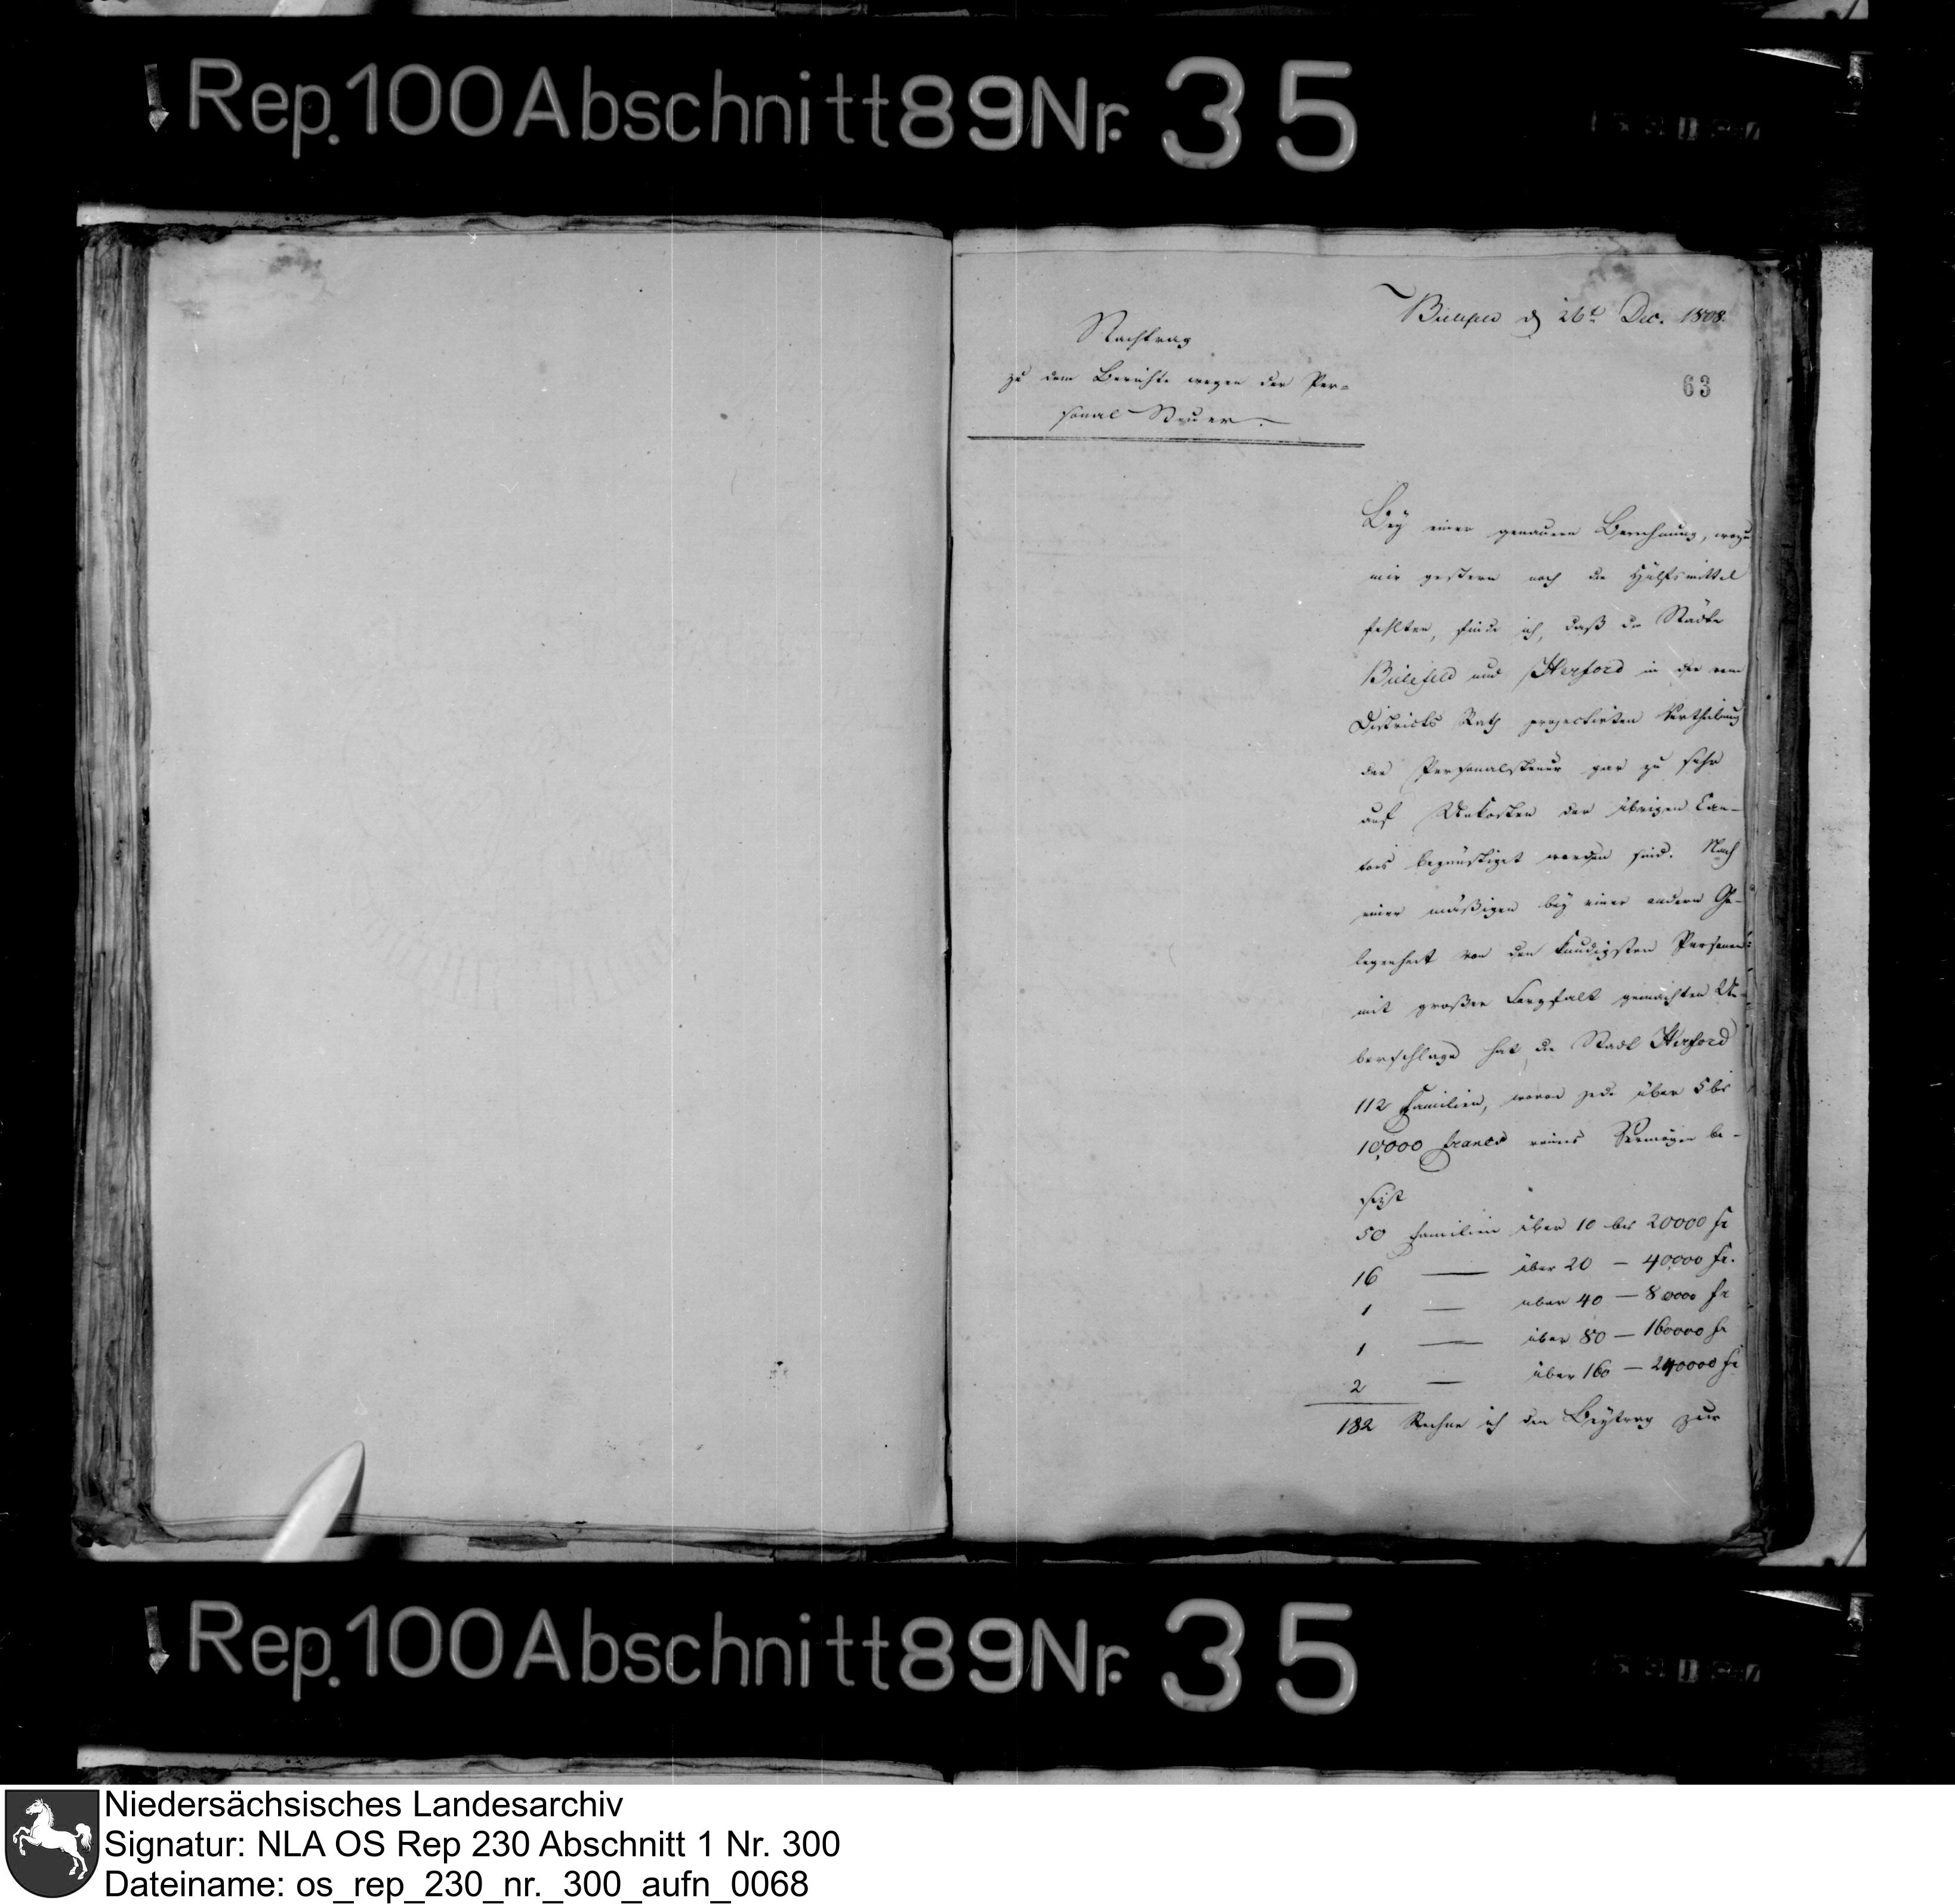 Rep. 100 Abschnitt 89 Nr. 35
Bielefeld d 26t Dec. 1808.
63
Nachtrag
zu dem Berichte wegen der Per=
sonal Steuer.
Bey einer genauern Berechnung, wozu
mir gestern noch die Hülfsmittel
fehlten, finde ich, daß die Städte
Bielefeld und Herford in der vom
Districts Rath projectirten Vertheilung
der Personalsteuer gar zu sehr
auf Unkosten der übrigen Can-
tons begünstiget worden sind. Nach
einer mäßigen bey einer andern Ge-
legenheit von den kundigsten Personen
mit großer Sorgfalt gemachten Ue-
berschlage hat die Stadt Herford
112 Familien, wovon jede über 5 bis
10,000 francs reines Vermögen be-
sizt
50 Familien über 10 bis 20000 fr
16 — über 20 — 40000 fr.
1 — über 40 — 80000 fr
1 — über 80 — 160000 fr
2 — über 160 — 240000 fr
182 Rechne ich den Beytrag zur
Rep. 100 Abschnitt 89 Nr. 35
Niedersächsisches Landesarchiv
Signatur: NLA OS Rep 230 Abschnitt 1 Nr. 300
Dateiname: os_rep_230_nr._300_aufn_0068